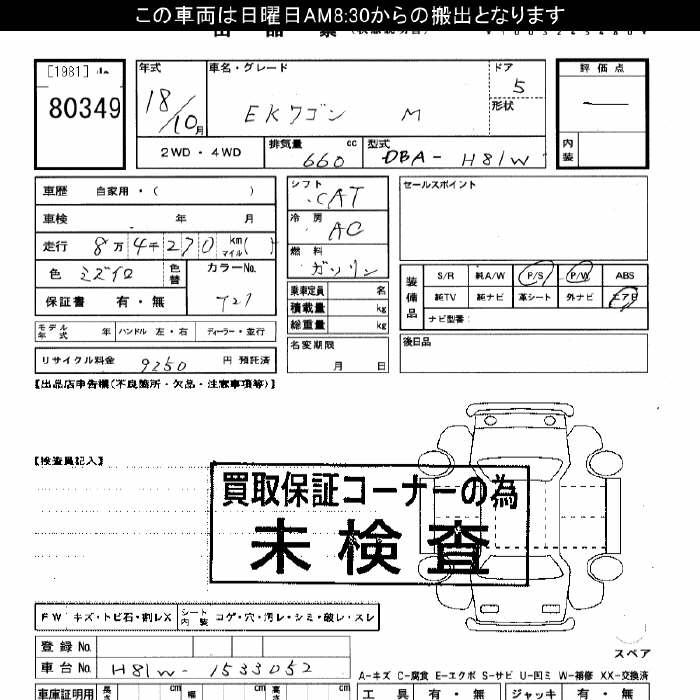 この車両は日曜日AM8:30からの搬出となります
出品票
[1981]
80349
年式
18/10月
車名・グレード
EKワゴン M
ドア
5
形状
評価点
内装
2WD・4WD
排気量 cc
660
型式
DBA-H81W
車歴 自家用・( )
車検 年 月
走行 8万4千270km マイル( )
色 ミズイロ 色替
カラーNo.
T27
保証書 有・無
シフト
CAT
冷房
AC
燃料
ガソリン
乗車定員 名
積載量 kg
総重量 kg
セールスポイント
装備品
S/R 純A/W P/S P/W ABS
純TV 純ナビ 革シート 外ナビ エアB
ナビ型番:
モデル年式 年 ハンドル 左・右 ディーラー・並行
リサイクル料金 9250 円 預託済
名変期限
月 日
後日品
【出品店申告欄(不良箇所・欠品・注意事項等)】
【検査員記入】
買取保証コーナーの為
未検査
FW キズ・トビ石・割レX
シート内装 コゲ・穴・汚レ・シミ・破レ・スレ
スペア
登録No.
車台No. H81W-1533052
A-キズ C-腐食 E-エクボ S-サビ U-凹ミ W-補修 XX-交換済
車庫証明用 長さ cm 幅 cm 高さ cm
工具 有・無 ジャッキ 有・無